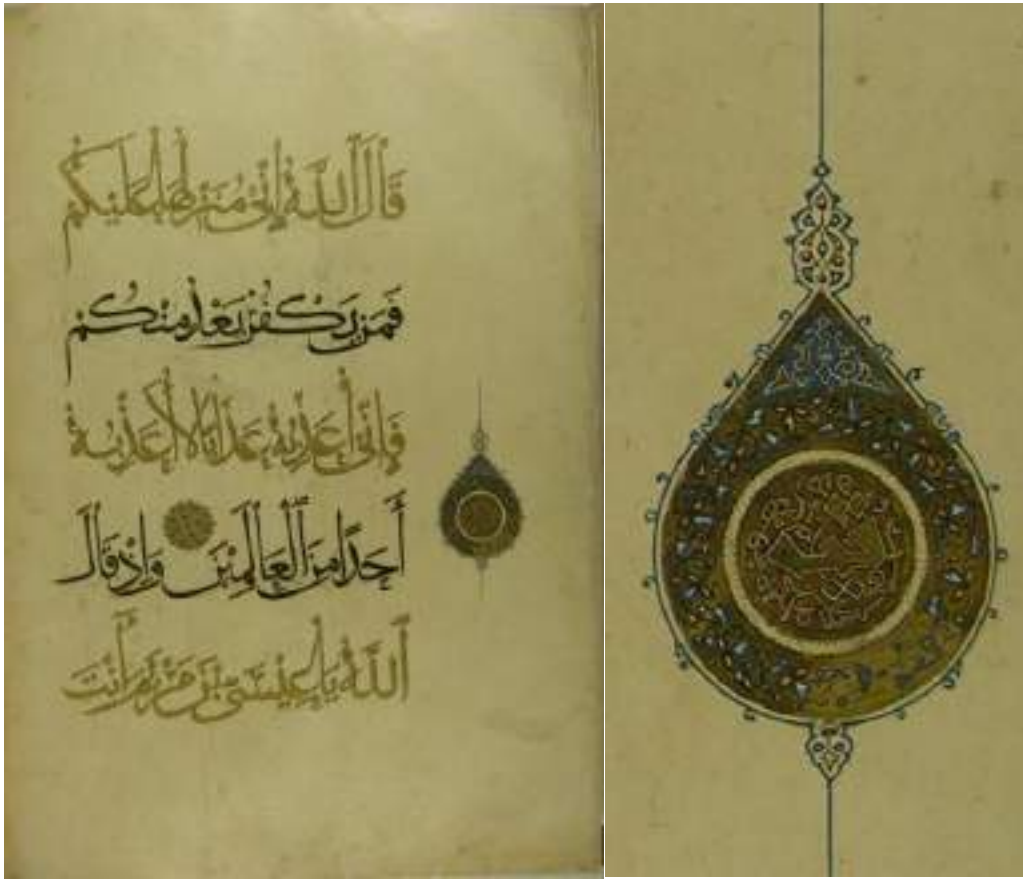 قَالَ اللَّهُ إِنِّي مُنَزِّلُهَا عَلَيْكُمْ
فَمَن يَكْفُرْ بَعْدُ مِنكُمْ
فَإِنِّي أُعَذِّبُهُ عَذَابًا لَا أُعَذِّبُهُ
أَحَدًا مِنَ الْعَالَمِينَ وَإِذْ قَالَ
اللَّهُ يَا عِيسَى بْنَ مَرْيَمَ أَأَنتَ